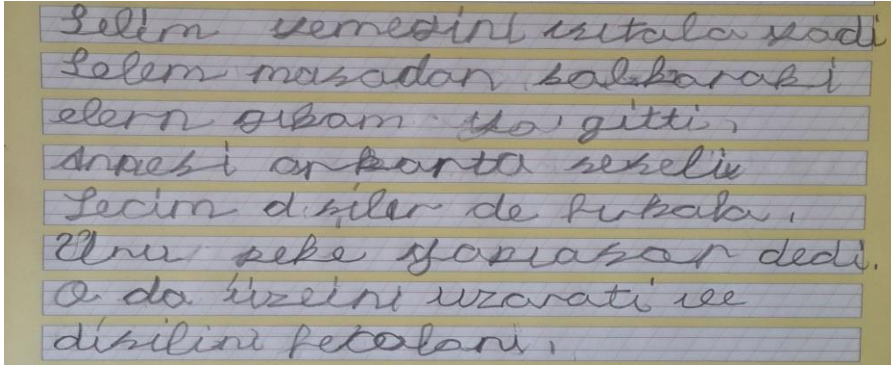 Selim yemesini ısıtala yadi
Selem masadan kalkaraki
elern gıkam ya gitti,
Annesi arkanta seselix
Secim disiler de fukala,
Unu peke yapıasar dedi.
O da üzeini uzarati vee
disilini fetolani,